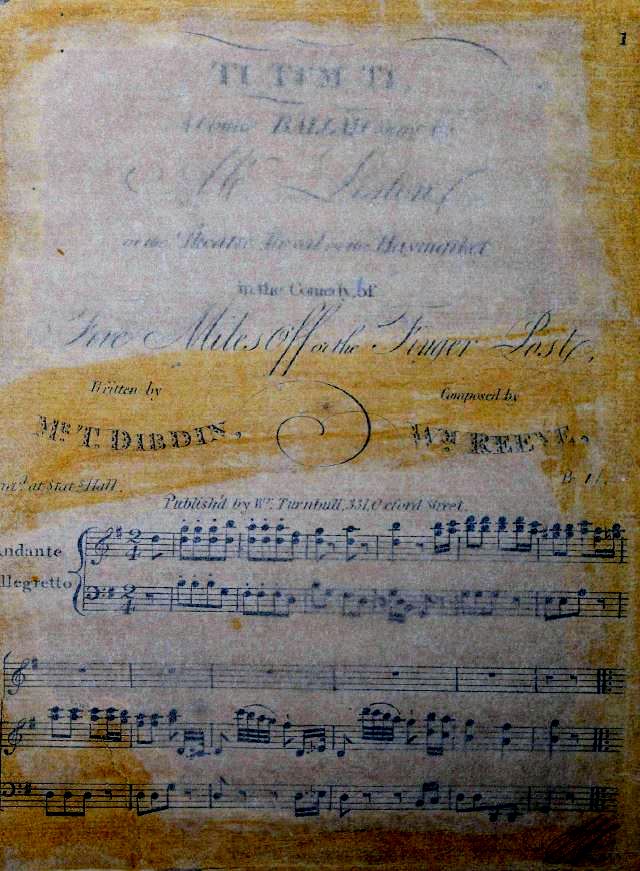 1
TI TUM TI,
A Comic BALLAD sung by
Mr. Liston
at the Theatre Royal in the Haymarket
in the Comedy of
Five Miles Off or the Finger Post,
Written by
Composed by
Mr. T. DIBDIN,
Wm. REEVE,
at Stat.s Hall.
Pr. 1/.
Publish'd by Wm. Turnbull, 331, Oxford Street
Andante
Allegretto
2 4
2 4